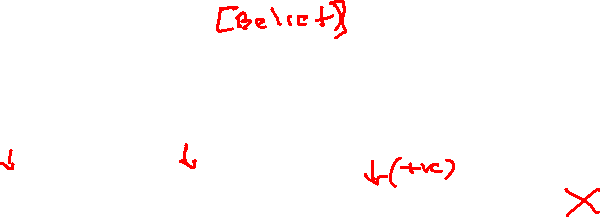 [Belief]
↓ ↓ ↓(+ve) X